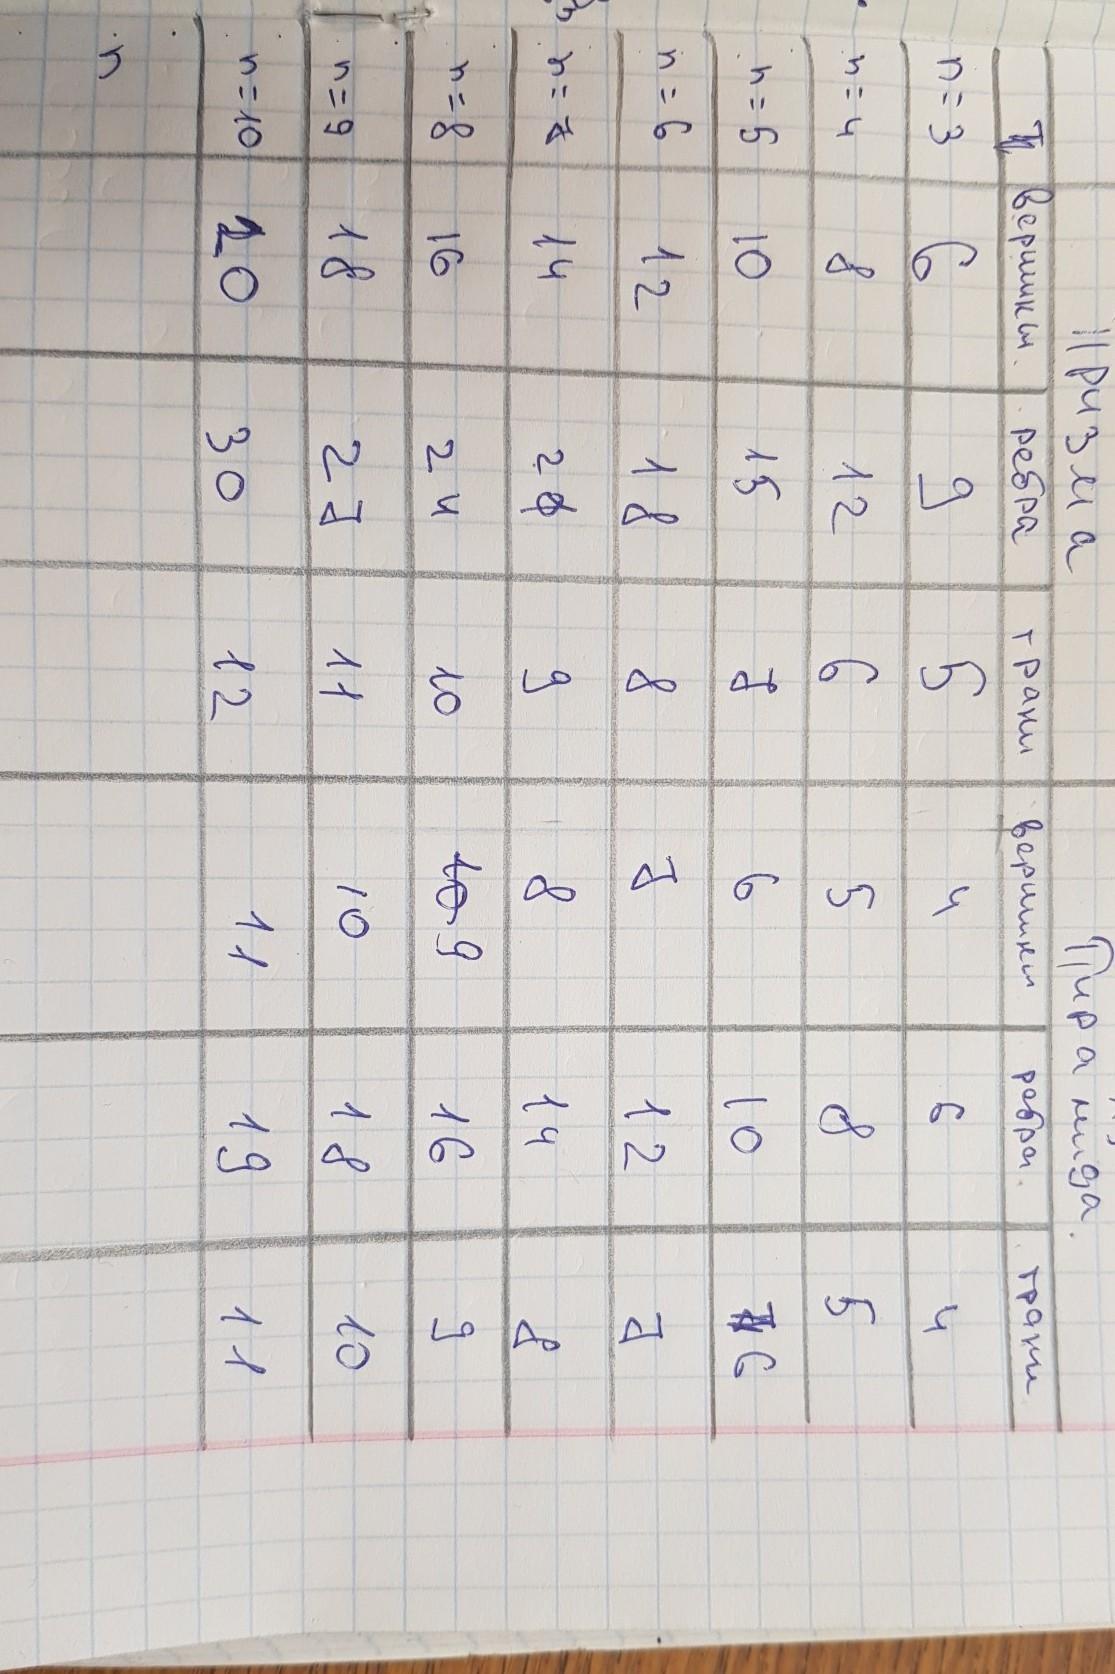 Призма Пирамида.
n вершины. ребра грани вершины ребра. грани
n=3 6 9 5 4 6 4
n=4 8 12 6 5 8 5
n=5 10 15 7 6 10 6
n=6 12 18 8 7 12 7
n=7 14 21 9 8 14 8
n=8 16 24 10 10 9 16 9
n=9 18 27 11 10 18 10
n=10 20 30 12 11 19 11
n